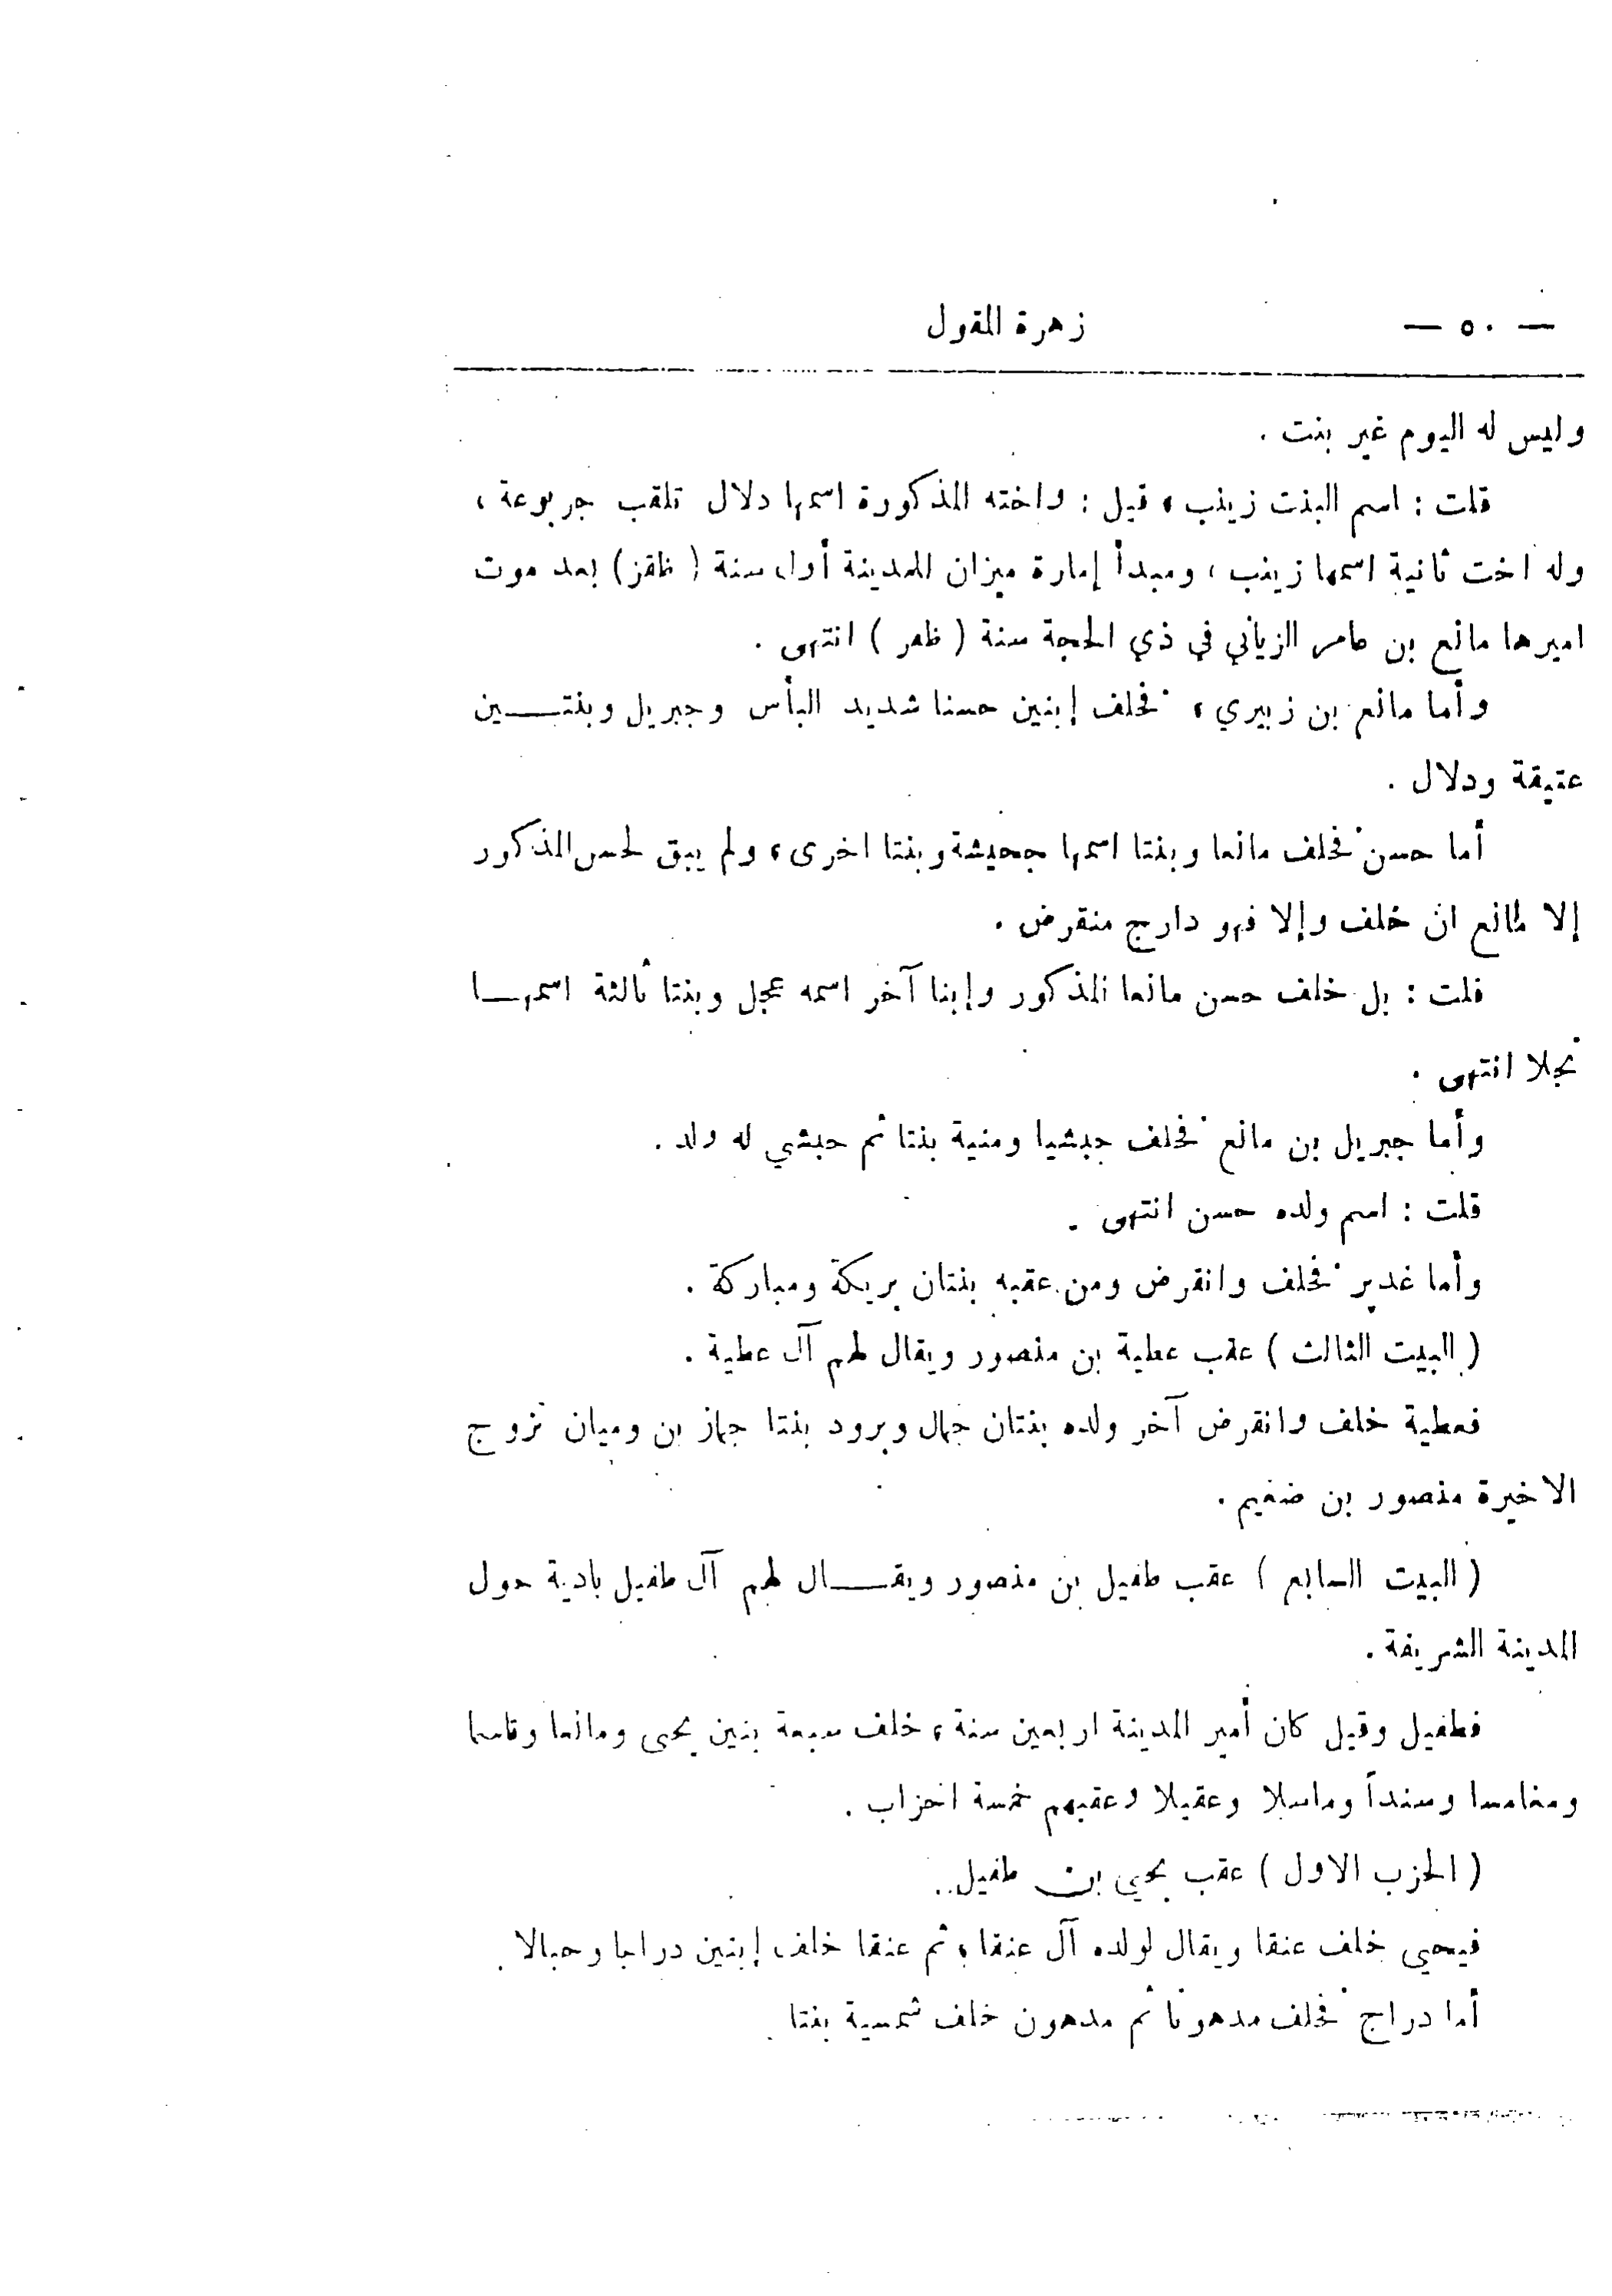 — ٥٠ — زهرة المقول
وليس له اليوم غير بنت .
قلت : اسم البنت زينب ، قيل : واخته المذكورة اسمها دلال تلقب جربوعة ،
وله اخت ثانية اسمها زينب ، ومبدأ إمارة ميزان المدينة أول سنة ( ظقز ) بعد موت
اميرها مانع بن عامر الزياني في ذي الحجة سنة ( ظهر ) انتهى .
وأما مانع بن زبيري ، فخلف إبنين حسنا شديد البأس وجبريل وبنتـــين
عتيقة ودلال .
أما حسن فخلف مانعا وبنتا اسمها جحيشة وبنتا اخرى ، ولم يبق لحسن المذكور
إلا لمانع ان خلف وإلا فهو دارج منقرض .
قلت : بل خلف حسن مانعا المذكور وإبنا آخر اسمه عجل وبنتا ثالثة اسمهـــا
نجلا انتهى .
وأما جبريل بن مانع فخلف حبشيا ومنية بنتا ثم حبشي له ولد .
قلت : اسم ولده حسن انتهى .
وأما غدير فخلف وانقرض ومن عقبه بنتان بريكة ومباركة .
( البيت الثالث ) عقب عطية بن منصور ويقال لهم آل عطية .
فعطية خلف وانقرض آخر ولده بنتان جمال وبرود بنتا جماز بن وميان تزوج
الاخيرة منصور بن ضغيم .
( البيت السابع ) عقب طفيل بن منصور ويقـــال لهم آل طفيل بادية حول
المدينة الشريفة .
فطفيل وقيل كان أمير المدينة اربعين سنة ، خلف سبعة بنين يحيى ومانعا وقاسما
ومغامسا وسنداً وماسلا وعقيلا وعقبهم خمسة احزاب .
( الحزب الاول ) عقب يحيى بن طفيل .
فيحيي خلف عنقا ويقال لولده آل عنقا ، ثم عنقا خلف إبنين دراجا وحبالا .
أما دراج فخلف مدهونا ثم مدهون خلف شمسية بنتا .